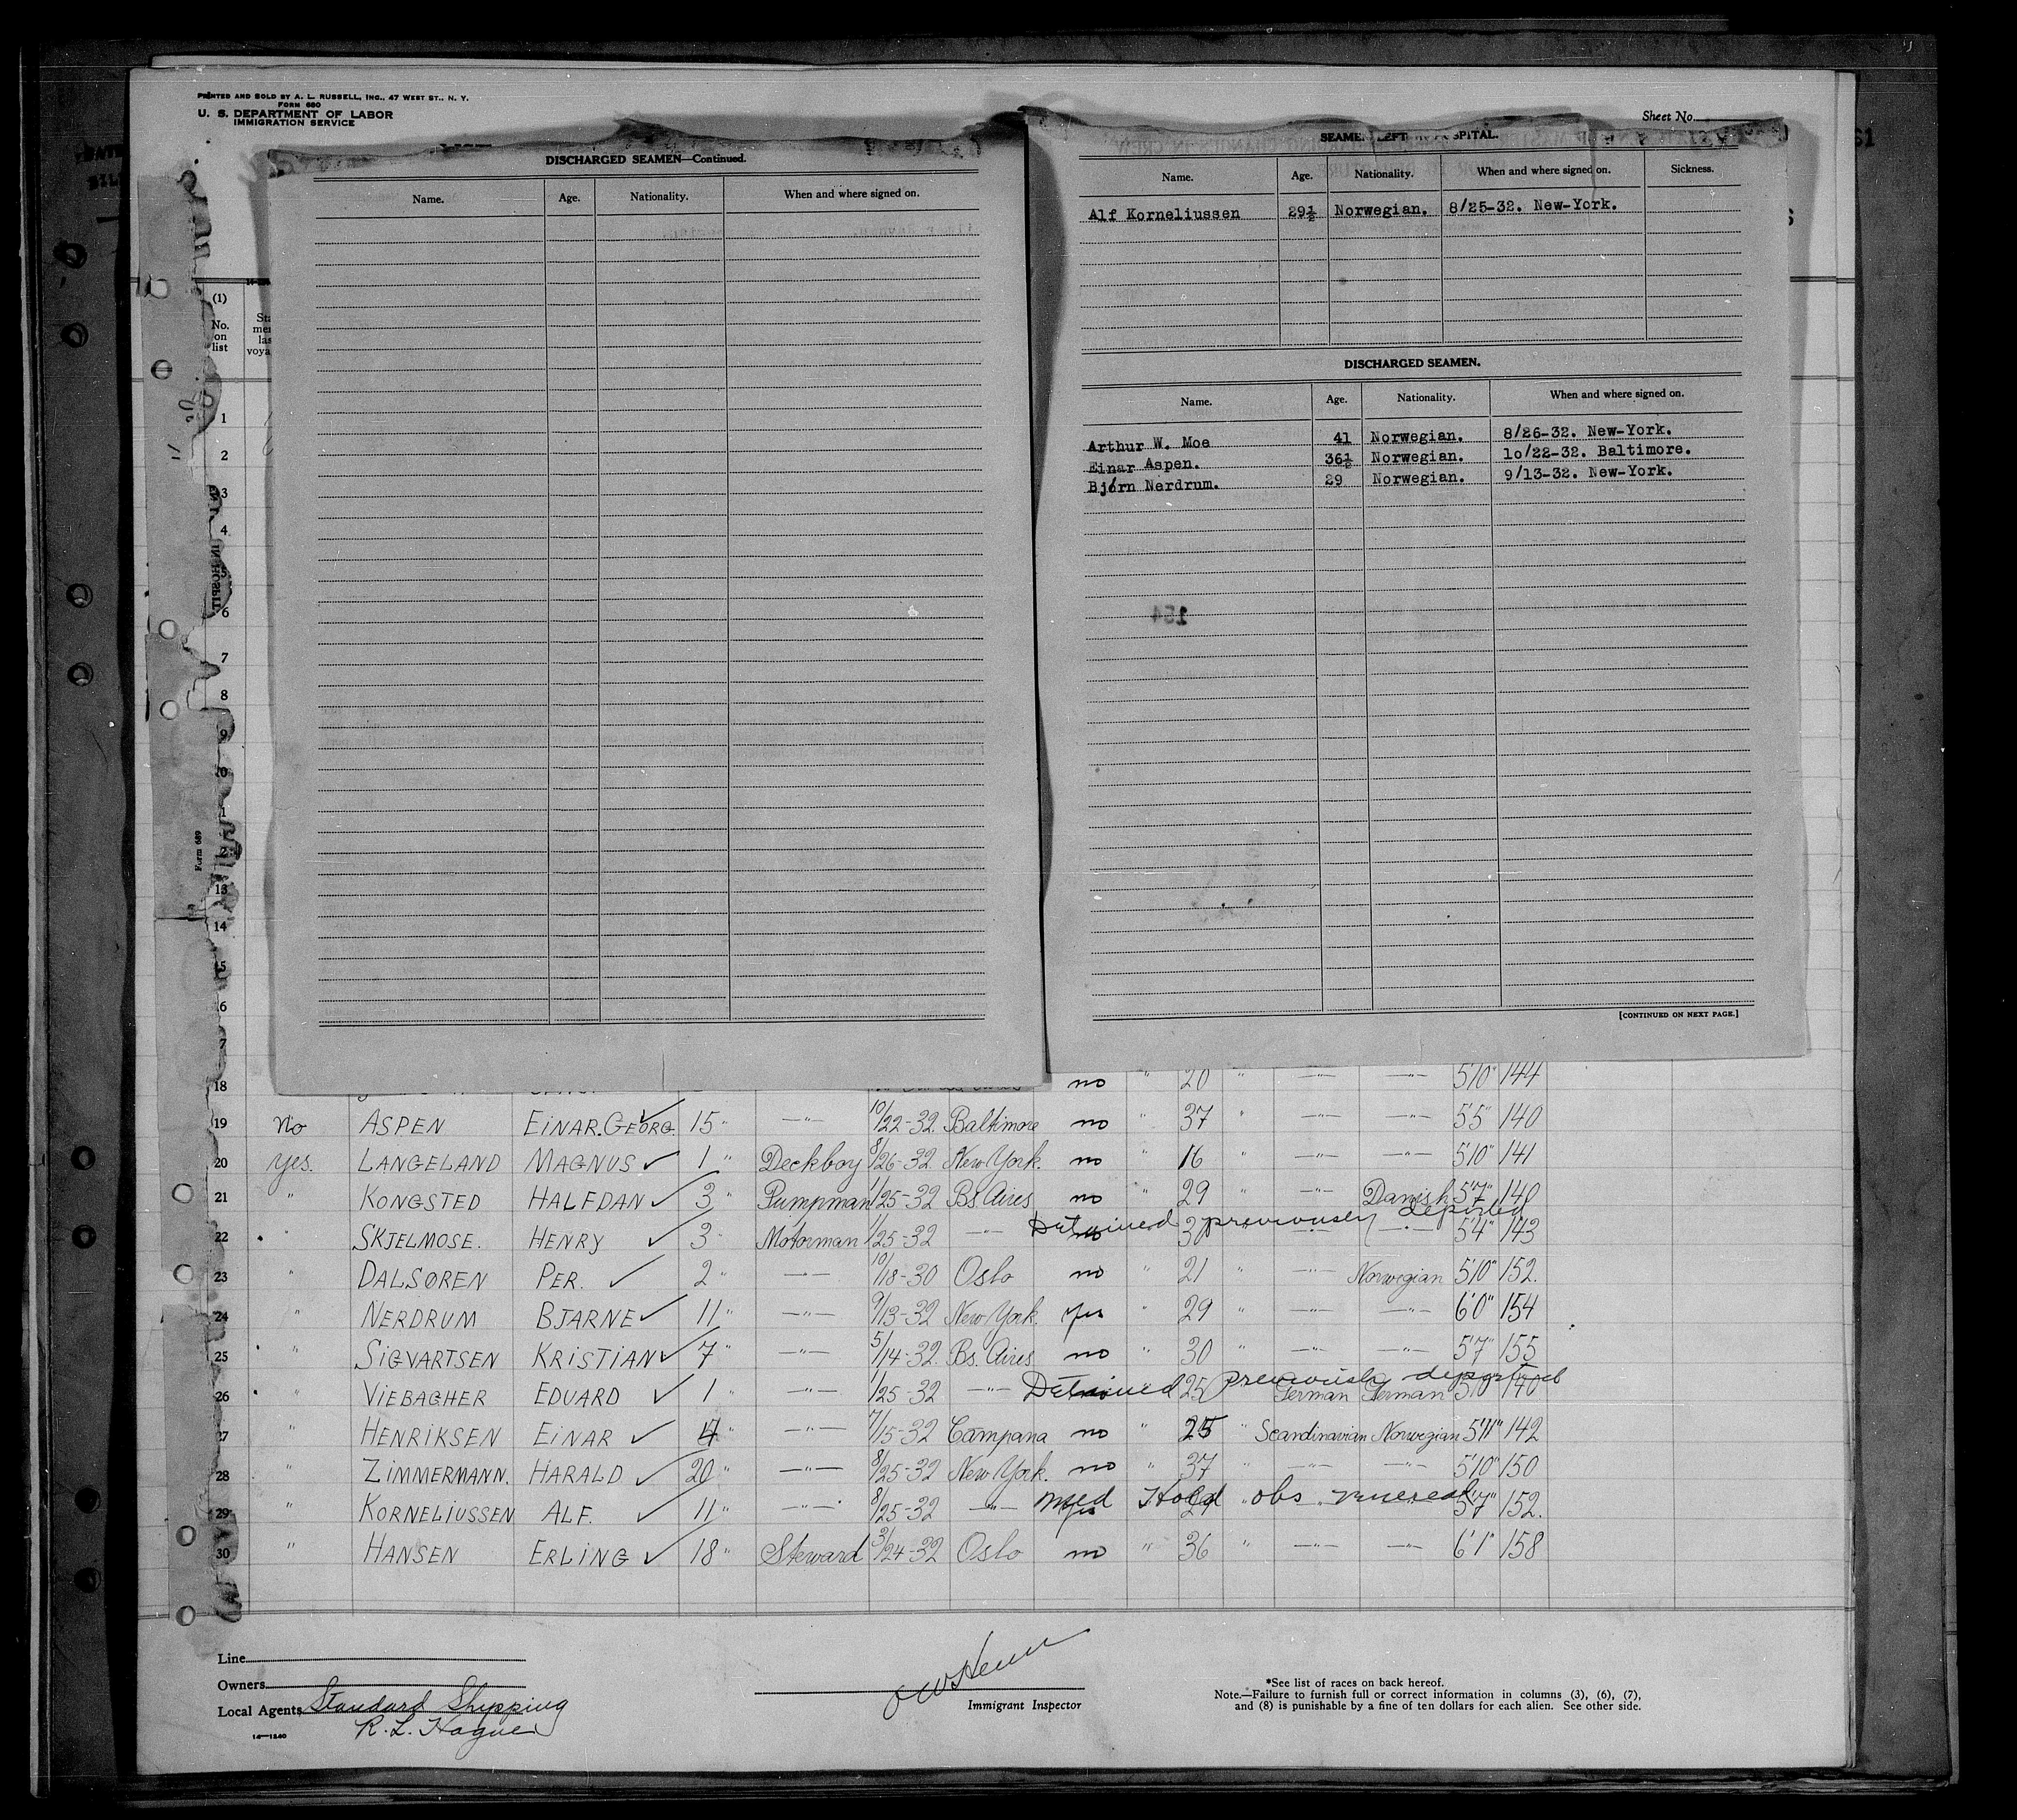 PRINTED AND SOLD BY A. L. RUSSELL, INC., 47 WEST ST., N. Y.
FORM 680
U. S. DEPARTMENT OF LABOR
IMMIGRATION SERVICE
Sheet No.
DISCHARGED SEAMEN—Continued.
Name. Age. Nationality. When and where signed on.
SEAMEN LEFT IN HOSPITAL.
Name. Age. Nationality. When and where signed on. Sickness.
Alf Korneliussen 29½ Norwegian. 8/25-32. New-York.
DISCHARGED SEAMEN.
Name. Age. Nationality. When and where signed on.
Arthur W. Moe 41 Norwegian. 8/26-32. New-York.
Einar Aspen. 36½ Norwegian. 10/22-32. Baltimore.
Bjørn Nerdrum. 29 Norwegian. 9/13-32. New-York.
[CONTINUED ON NEXT PAGE.]
(1)
No. on list
1
2
3
4
5
6
7
8
9
13
14
Form 689
18 no " 20 " —"— —"— 5'10" 144
19 no ASPEN EINAR.GEORG. 15 " —"— 10/22-32 Baltimore no " 37 " —"— —"— 5'5" 140
20 yes. LANGELAND MAGNUS ✓ 1 " Deckboy 8/26-32 New York. no " 16 " —"— —"— 5'10" 141
21 " KONGSTED HALFDAN ✓ 3 " Pumpman 1/25-32 Bs. Aires no " 29 " —"— Danish 5'7" 140
Detained previously deported
22 " SKJELMOSE. HENRY ✓ 3 " Motorman 1/25-32 —"— no 30 —"— —"— 5'4" 143
23 " DALSØREN PER. ✓ 2 " —"— 10/18-30 Oslo no " 21 " —"— Norwegian 5'10" 152.
24 " NERDRUM BJARNE ✓ 11 " —"— 9/13-32 New York. yes " 29 " —"— —"— 6'0" 154
25 " SIGVARTSEN KRISTIAN ✓ 7 " —"— 5/14-32. Bs. Aires no " 30 " —"— —"— 5'7" 155
Detained previously deported
26 " VIEBAGHER EDUARD ✓ 1 " —"— 1/25-32 —"— 25 German German 5'10" 140
27 " HENRIKSEN EINAR ✓ 4 " —"— 7/15-32 Campana no " 25 " Scandinavian Norwegian 5'11" 142
28 " ZIMMERMANN. HARALD ✓ 20 " —"— 8/25-32 New York. no " 37 " —"— —"— 5'10" 150
med Hold obs venereal
29 " KORNELIUSSEN ALF. ✓ 11 " —"— 8/25-32 —"— yes 29 " 5'7" 152.
30 " HANSEN ERLING ✓ 18 " Steward 3/24-32 Oslo no " 36 " —"— —"— 6'1" 158
Line
Owners
Local Agents Standard Shipping
R. L. Hague
16—1240
Immigrant Inspector
*See list of races on back hereof.
Note.—Failure to furnish full or correct information in columns (3), (6), (7),
and (8) is punishable by a fine of ten dollars for each alien. See other side.